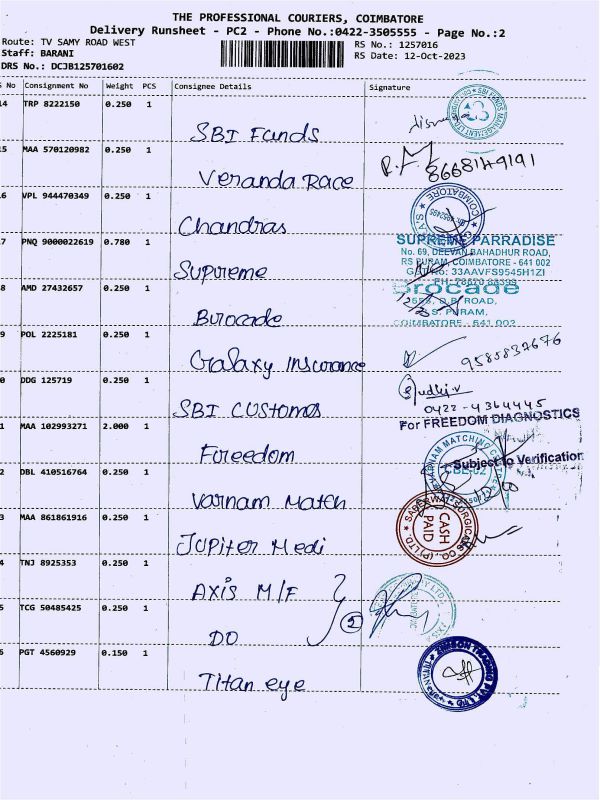 THE PROFESSIONAL COURIERS, COIMBATORE
Delivery Runsheet - PC2 - Phone No.:0422-3505555 - Page No.:2
Route: TV SAMY ROAD WEST
RS No.: 1257016
Staff: BARANI
RS Date: 12-Oct-2023
DRS No.: DCJB125701602
S No Consignment No Weight PCS Consignee Details Signature
14 TRP 8222150 0.250 1
SBI Funds
15 MAA 570120982 0.250 1
Veranda Race 8668149191
6 VPL 944470349 0.250 1
Chandras
COIMBATORE
7 PNQ 9000022619 0.780 1
Supreme
SUPREME PARRADISE
No. 69, DEEVAN BAHADHUR ROAD,
RS PURAM, COIMBATORE - 641 002
GST No: 33AAVFS9545H1ZI
8 AMD 27432657 0.250 1
Brocade
Brocade
D.B. ROAD,
R.S. PURAM,
COIMBATORE - 641 002
9 POL 2225181 0.250 1
Galaxy Insurance 9585837676
0 DDG 125719 0.250 1
SBI Customes
Sudhi.v
0422-4364445
1 MAA 102993271 2.000 1
Freedom
For FREEDOM DIAGNOSTICS
Subject to Verification
2 DBL 410516764 0.250 1
Varnam Match
3 MAA 861861916 0.250 1
Jupiter Medi
CASH
PAID
4 TNJ 8925353 0.250 1
AXIS M/F
5 TCG 50485425 0.250 1
DO
2
6 PGT 4560929 0.150 1
Titan eye